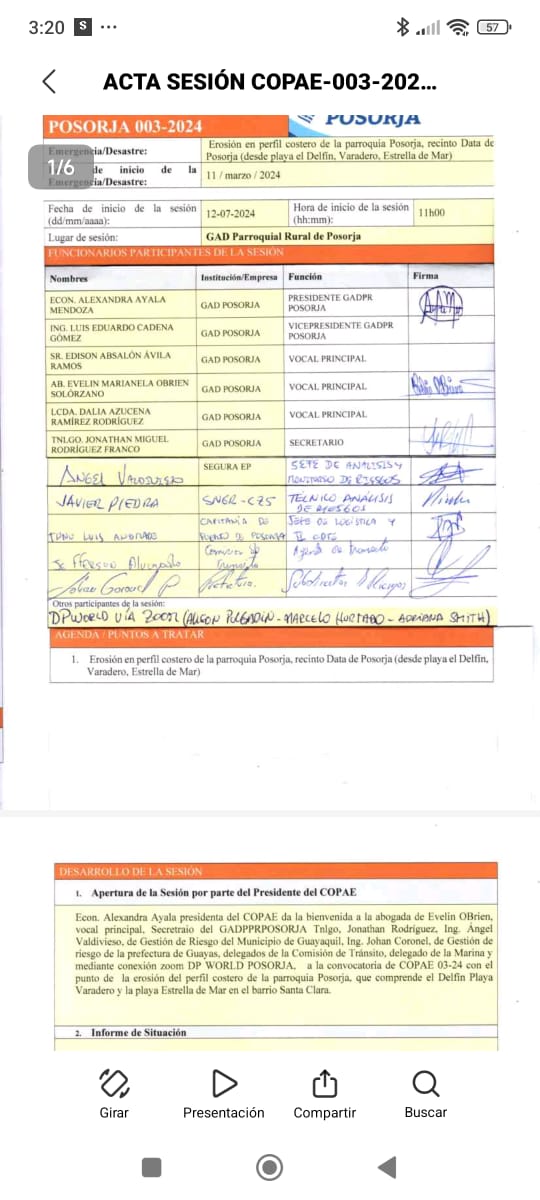 3:20 S ... 57
ACTA SESIÓN COPAE-003-202...
POSORJA
POSORJA 003-2024
1/6
Emergencia/Desastre:
Erosión en perfil costero de la parroquia Posorja, recinto Data de
Posorja (desde playa el Delfín, Varadero, Estrella de Mar)
de inicio de la
Emergencia/Desastre:
11 / marzo / 2024
Fecha de inicio de la sesión
(dd/mm/aaaa):
12-07-2024
Hora de inicio de la sesión
(hh:mm):
11h00
Lugar de sesión:
GAD Parroquial Rural de Posorja
FUNCIONARIOS PARTICIPANTES DE LA SESIÓN
Nombres Institución/Empresa Función Firma
ECON. ALEXANDRA AYALA
MENDOZA
GAD POSORJA
PRESIDENTE GADPR
POSORJA
ING. LUIS EDUARDO CADENA
GÓMEZ
GAD POSORJA
VICEPRESIDENTE GADPR
POSORJA
SR. EDISON ABSALÓN ÁVILA
RAMOS
GAD POSORJA
VOCAL PRINCIPAL
AB. EVELIN MARIANELA OBRIEN
SOLÓRZANO
GAD POSORJA
VOCAL PRINCIPAL
LCDA. DALIA AZUCENA
RAMÍREZ RODRÍGUEZ
GAD POSORJA
VOCAL PRINCIPAL
TNLGO. JONATHAN MIGUEL
RODRÍGUEZ FRANCO
GAD POSORJA
SECRETARIO
ANGEL VALDIVIESO
SEGURA EP
JEFE DE ANALISIS Y
MONITOREO DE RIESGOS
JAVIER PIEDRA
SNGR-CZ5
TÉCNICO ANÁLISIS
DE RIESGOS
LUIS ANDRADE
CAPITANÍA DE
PUERTO DE POSORJA
JEFE DE LOGÍSTICA Y
Jefferson Alvarado
Comisión
Agente de transito
Johan Coronel P
Prefectura.
Otros participantes de la sesión:
DPWORLD VÍA ZOOM (ALISON - MARCELO HURTADO - ADRIANA SMITH)
AGENDA / PUNTOS A TRATAR
1. Erosión en perfil costero de la parroquia Posorja, recinto Data de Posorja (desde playa el Delfín,
Varadero, Estrella de Mar)
DESARROLLO DE LA SESIÓN
1. Apertura de la Sesión por parte del Presidente del COPAE
Econ. Alexandra Ayala presidenta del COPAE da la bienvenida a la abogada de Evelin OBrien,
vocal principal, Secretraio del GADPPRPOSORJA Tnlgo, Jonathan Rodríguez, Ing. Ángel
Valdivieso, de Gestión de Riesgo del Municipio de Guayaquil, Ing. Johan Coronel, de Gestión de
riesgo de la prefectura de Guayas, delegados de la Comisión de Tránsito, delegado de la Marina y
mediante conexión zoom DP WORLD POSORJA, a la convocatoria de COPAE 03-24 con el
punto de la erosión del perfil costero de la parroquia Posorja, que comprende el Delfín Playa
Varadero y la playa Estrella de Mar en el barrio Santa Clara.
2. Informe de Situación
Girar
Presentación
Compartir
Buscar